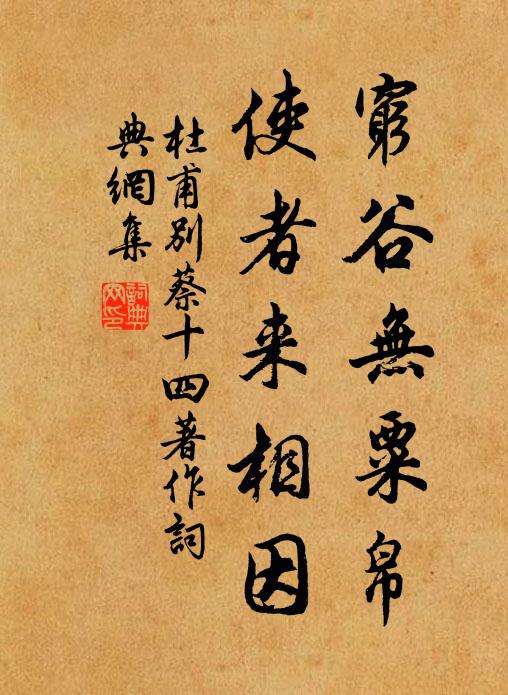 窮谷無粟帛
使者来相因
杜甫別蔡十四著作詞
典網集
詞典網印